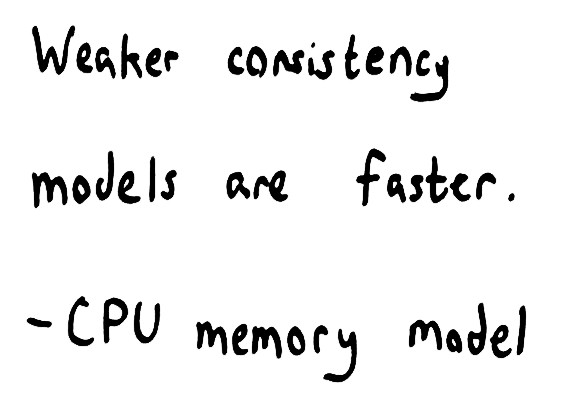 Weaker consistency
models are faster.
- CPU memory model